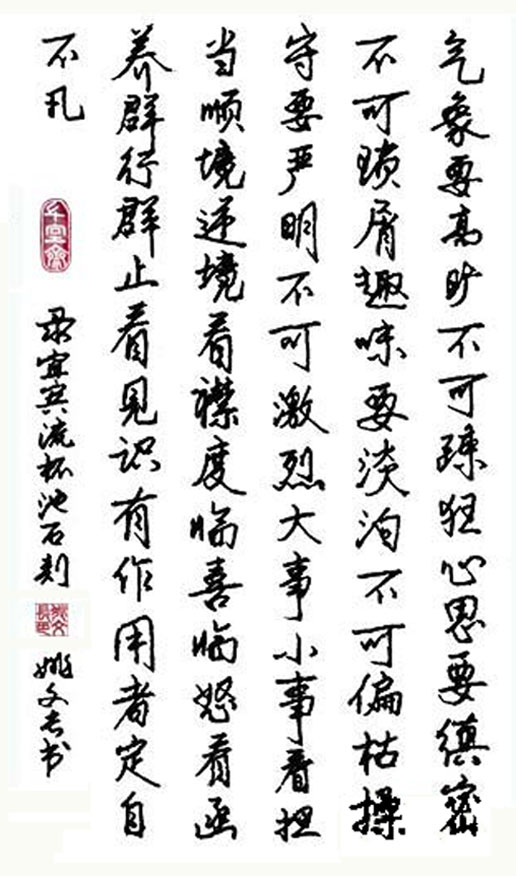 气象要高旷不可疎狂心思要缜密
不可琐屑趣味要淡泊不可偏枯操
守要严明不可激烈大事小事看担
当顺境逆境看襟度临喜临怒看涵
养群行群止看见识有作用者定自
不凡
录宜宾流杯池石刻
姚文长书